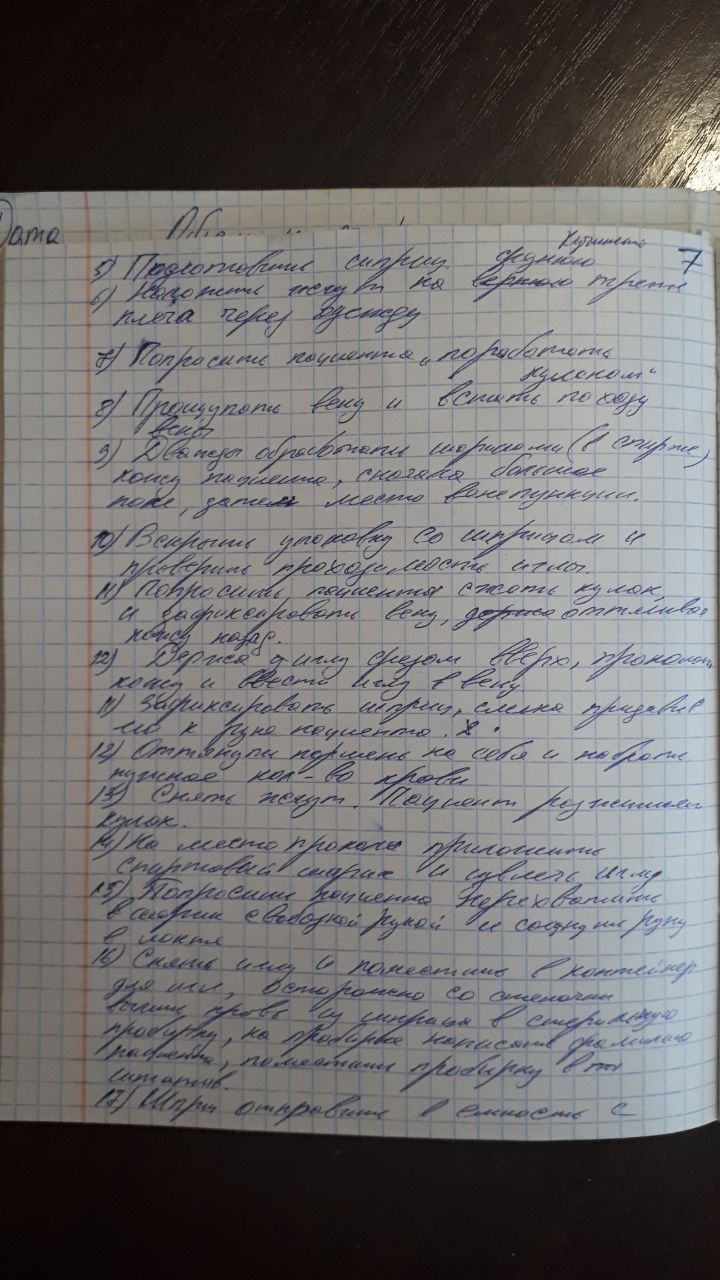 Дата
7
5) Подготовить шприц
6) Наложить жгут на верхнюю треть
плеча через одежду
7) Попросить пациента „поработать
кулаком“
8) Прощупать вену и встать по ходу
вены
9) Дважды обработать шариками (в спирте)
кожу пациента, сначала большое
поле, затем место венепункции.
10) Вскрыть упаковку со шприцом и
проверить проходимость иглы.
11) Попросить пациента сжать кулак,
и зафиксировать вену, оттягивая
кожу назад.
12) Держа иглу срезом вверх, проколоть
кожу и ввести иглу в вену
11) Зафиксировать шприц, слегка придавив
его к руке пациента.
12) Оттянуть поршень на себя и набрать
нужное кол-во крови
13) Снять жгут. Пациент разжимает
кулак.
14) На место прокола приложить
спиртовый шарик и извлечь иглу
15) Попросить пациента перехватить
шарик свободной рукой и согнуть руку
в локте
16) Снять иглу и поместить в контейнер
для игл, осторожно со стеночки
вылить кровь из шприца в стерильную
пробирку, на пробирке написать фамилию
пациента, поместить пробирку в
штатив.
17) Шприц отправить в емкость с